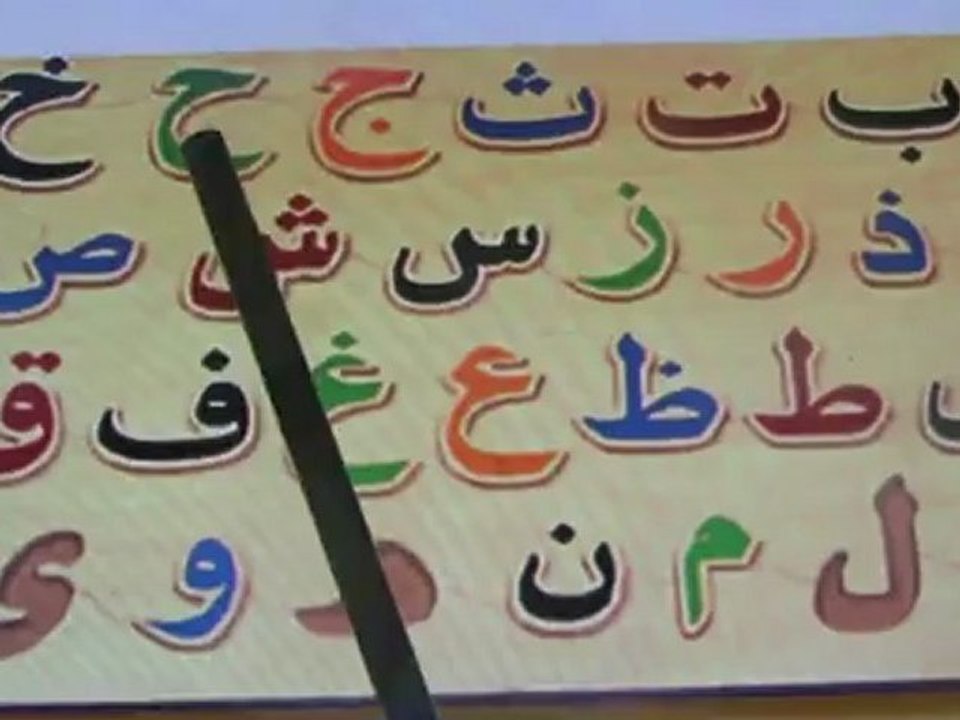 ب ت ث ج ح خ
ذ ر ز س ش ص
ط ظ ع غ ف ق
ل م ن و ى